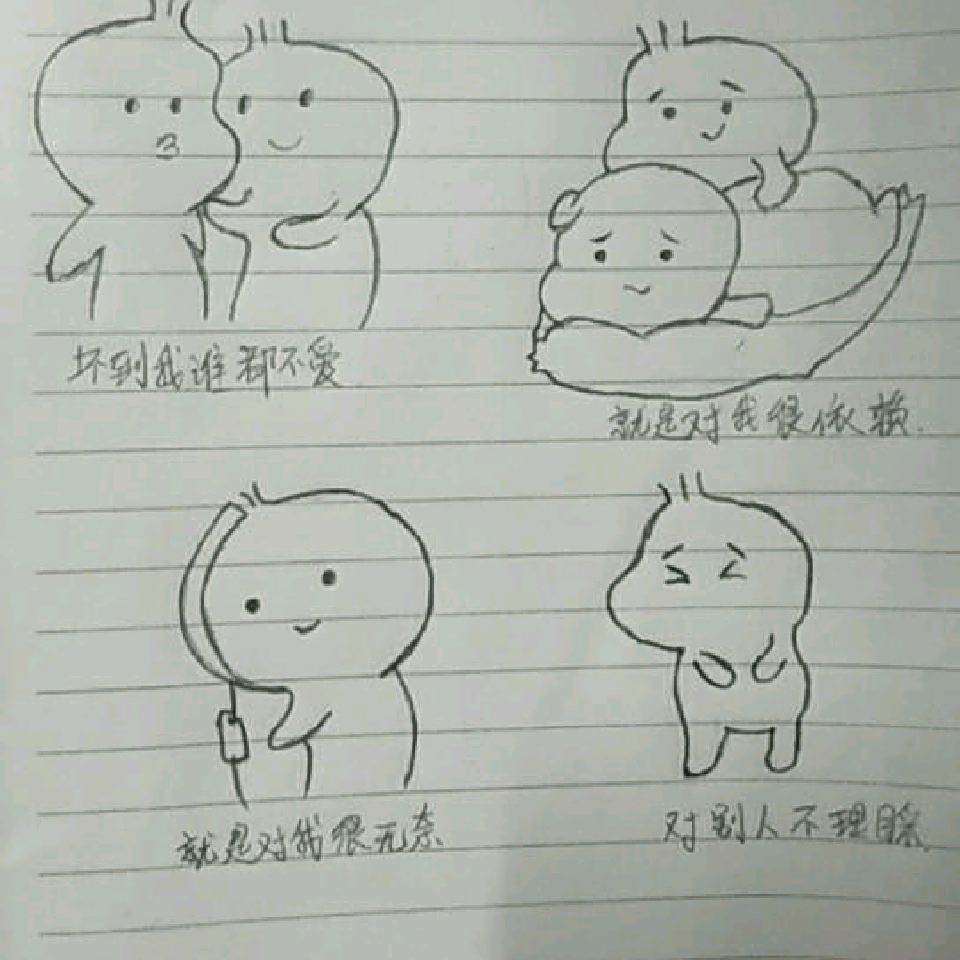 坏到我谁都不爱
就是对我很依赖.
就是对我很无奈
对别人不理睬.